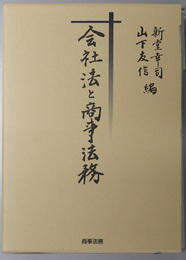 会社法と商事法務
新堂幸司
山下友信 編
商事法務